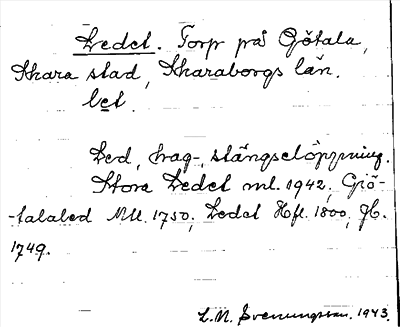 Ledet. Torp på Götala,
Skara stad, Skaraborgs län.
let.
Led, hag-, stängselöppning.
Stora Ledet ml. 1942; Giö-
-talaled Mtl. 1750; Ledet Hfl. 1800, Jb.
1749.
L.M. Svenungsson. 1943.